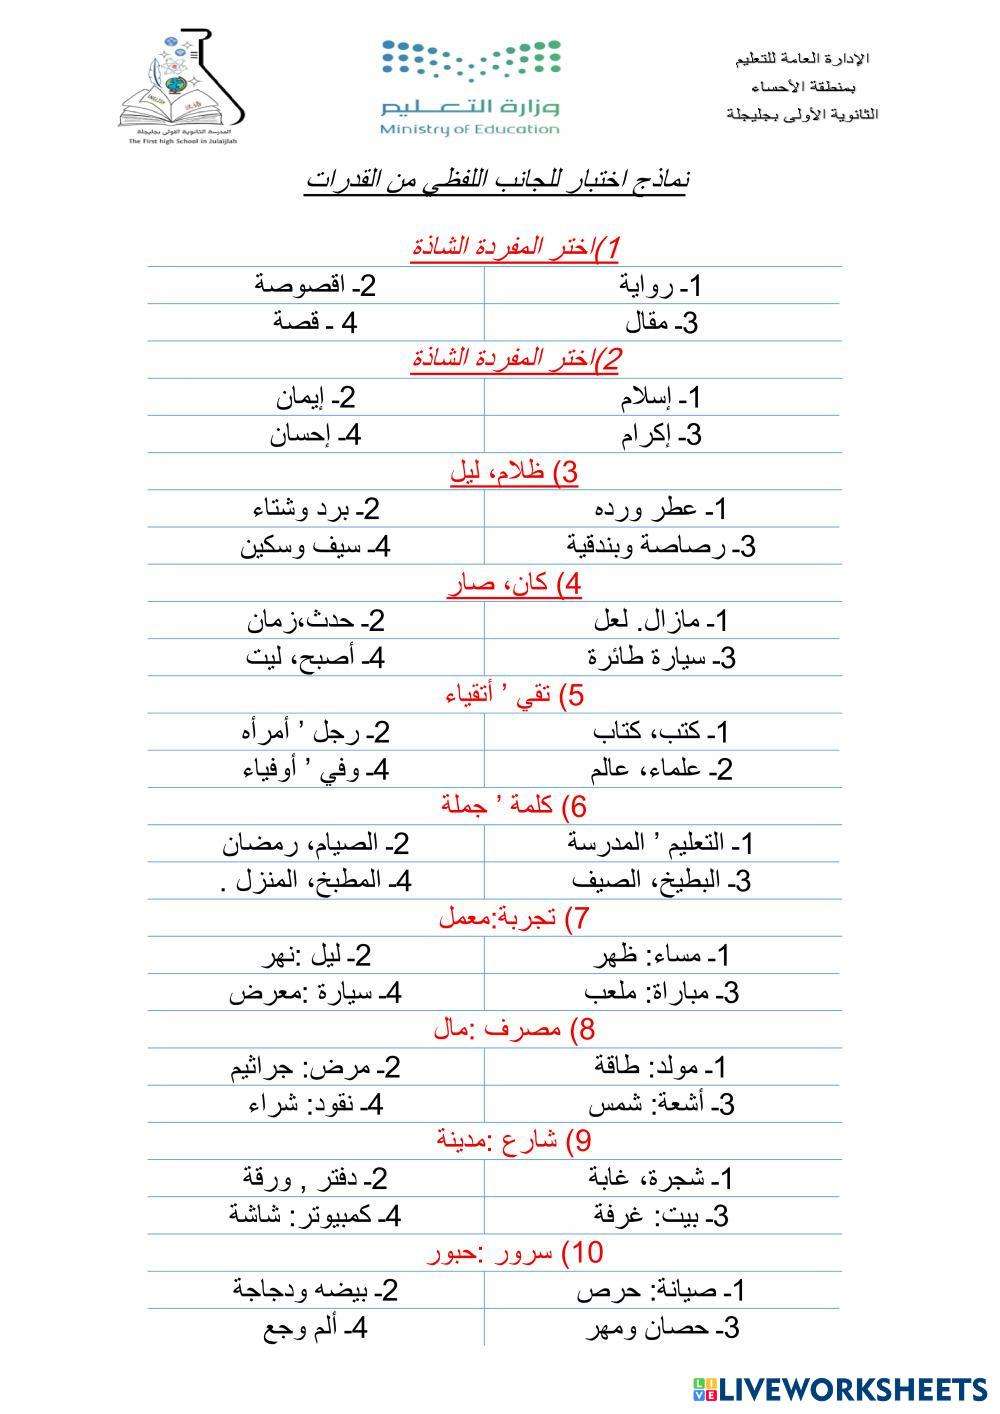 الإدارة العامة للتعليم
بمنطقة الأحساء
الثانوية الأولى بجليجلة
وزارة التعليم
Ministry of Education
المدرسة الثانوية الأولى بجليجلة
The First high School in Julaijlah
نماذج اختبار للجانب اللفظي من القدرات
1)اختر المفردة الشاذة
1ـ رواية 2ـ اقصوصة
3ـ مقال 4 ـ قصة
2)اختر المفردة الشاذة
1ـ إسلام 2ـ إيمان
3ـ إكرام 4ـ إحسان
3) ظلام، ليل
1ـ عطر ورده 2ـ برد وشتاء
3ـ رصاصة وبندقية 4ـ سيف وسكين
4) كان، صار
1ـ مازال. لعل 2ـ حدث،زمان
3ـ سيارة طائرة 4ـ أصبح، ليت
5) تقي ’ أتقياء
1ـ كتب، كتاب 2ـ رجل ’ أمرأه
2ـ علماء، عالم 4ـ وفي ’ أوفياء
6) كلمة ’ جملة
1ـ التعليم ’ المدرسة 2ـ الصيام، رمضان
3ـ البطيخ، الصيف 4ـ المطبخ، المنزل .
7) تجربة:معمل
1ـ مساء: ظهر 2ـ ليل :نهر
3ـ مباراة: ملعب 4ـ سيارة :معرض
8) مصرف :مال
1ـ مولد: طاقة 2ـ مرض: جراثيم
3ـ أشعة: شمس 4ـ نقود: شراء
9) شارع :مدينة
1ـ شجرة، غابة 2ـ دفتر , ورقة
3ـ بيت: غرفة 4ـ كمبيوتر: شاشة
10) سرور :حبور
1ـ صيانة: حرص 2ـ بيضه ودجاجة
3ـ حصان ومهر 4ـ ألم وجع
LIVEWORKSHEETS